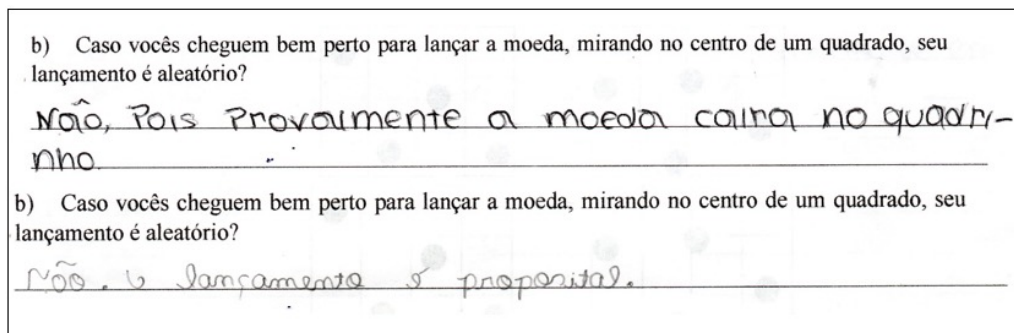 b) Caso vocês cheguem bem perto para lançar a moeda, mirando no centro de um quadrado, seu
lançamento é aleatório?
Não, Pois Provalmente a moeda caira no quadri-
nho.
b) Caso vocês cheguem bem perto para lançar a moeda, mirando no centro de um quadrado, seu
lançamento é aleatório?
Não. O lançamento é proposital.